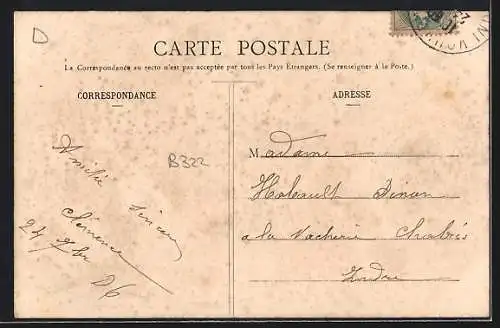 D
CARTE POSTALE
La Correspondance au recto n'est pas acceptée par tous les Pays Etrangers. (Se renseigner à la Poste.)
CORRESPONDANCE
ADRESSE
Amitié
sincère
Clémence
24 7bre 06
B322
Madame
a la Vacherie Chabris
Indre